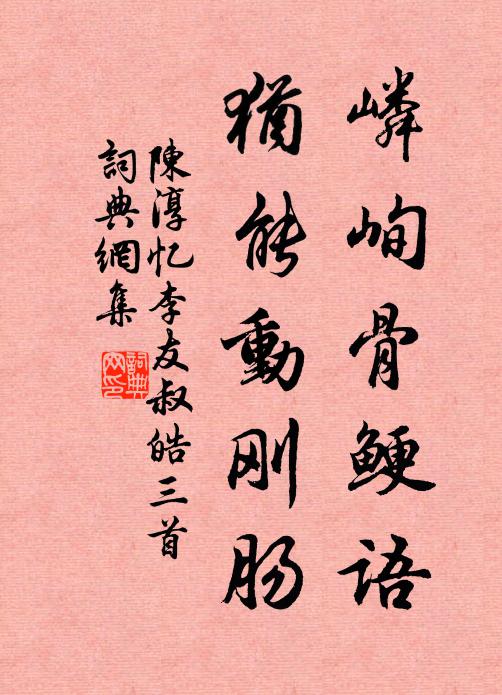 嶙峋骨鲠语
犹能動刚肠
陳淳忆李友叔皓三首
詞典網集
詞典网印